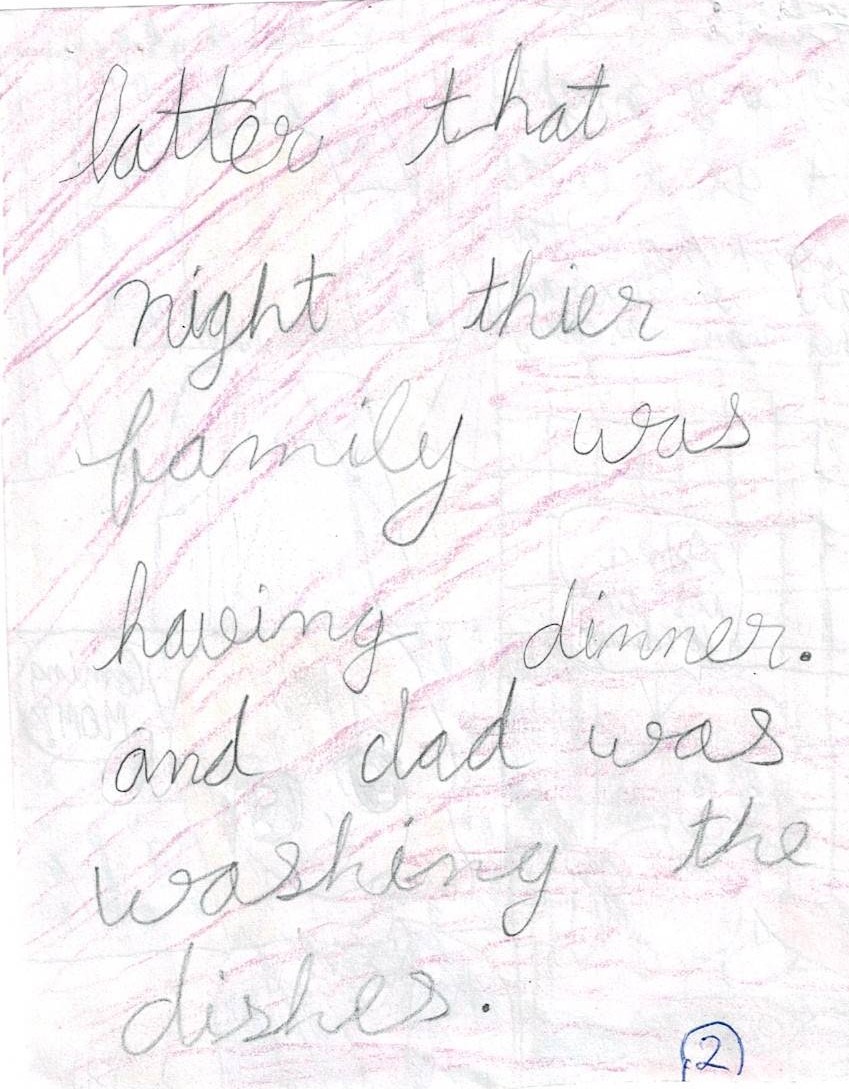 latter that
night thier
family was
having dinner.
and dad was
washing the
dishes.
2